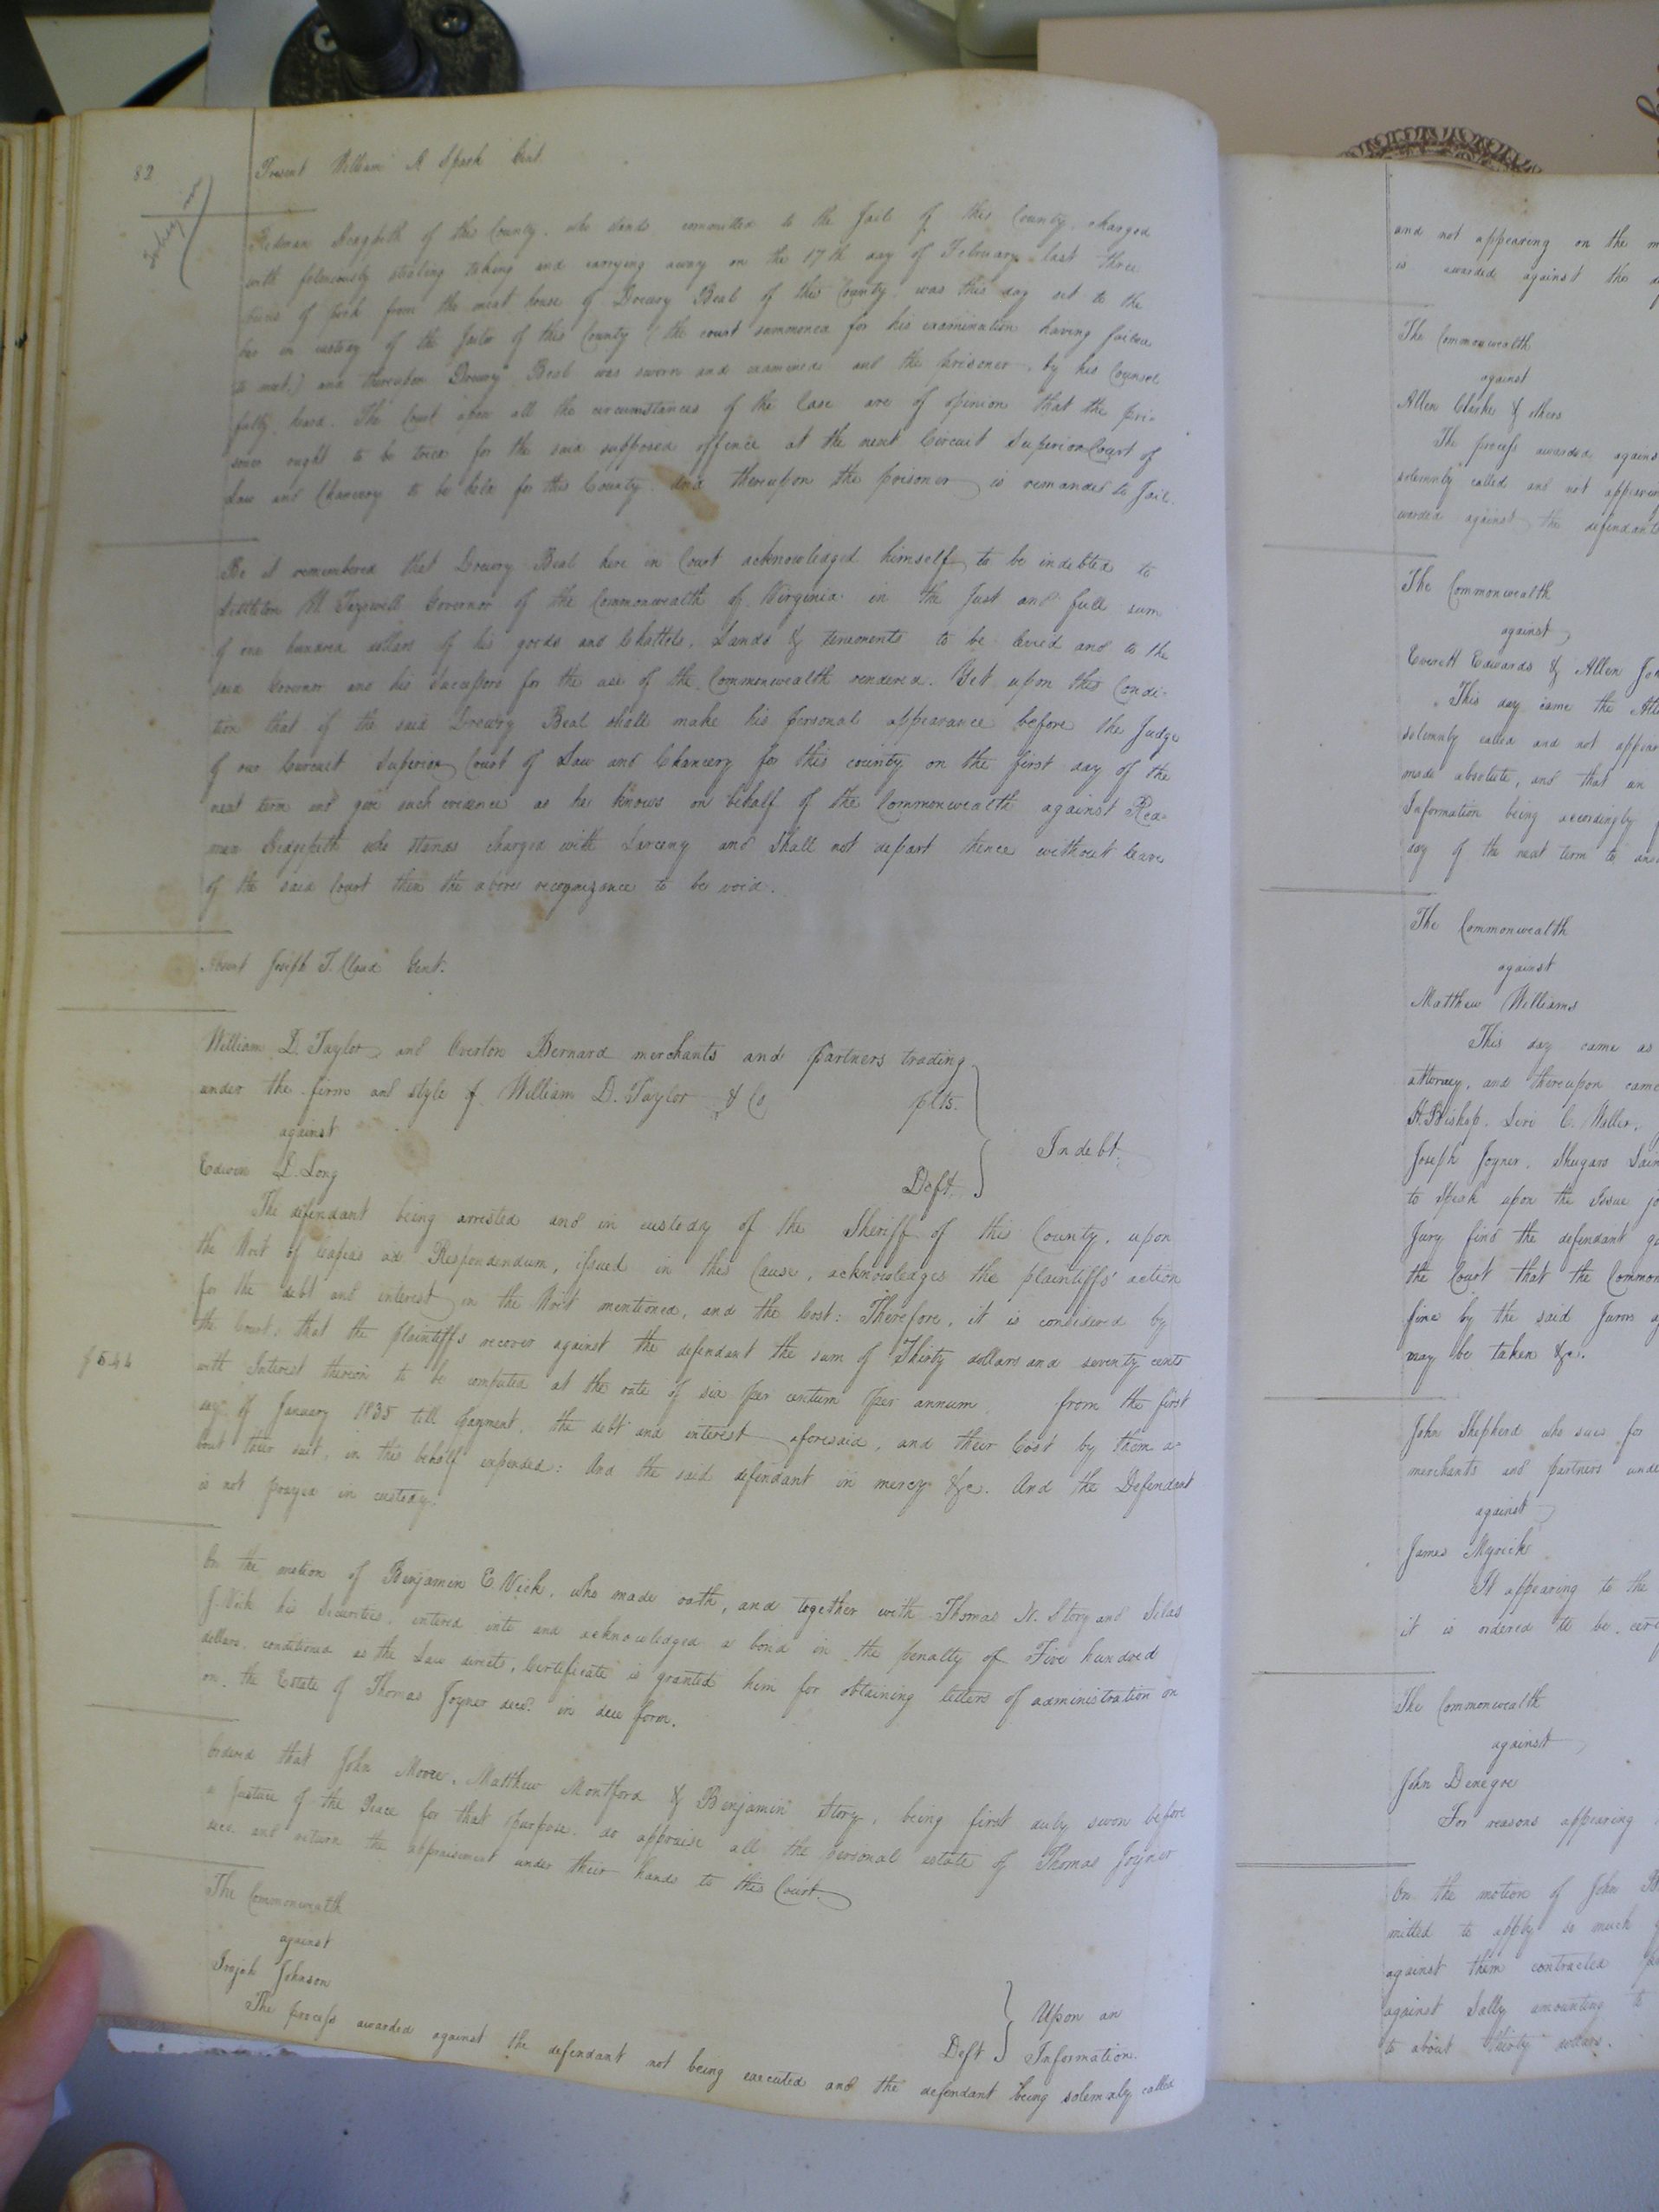 82
Present William A Spark Gent.
Redman Hedgpeth of this County, who stands committed to the Jail of this County, charged
with feloniously stealing taking and carrying away on the 17th day of February last three
of pork from the meat house of Drewry Beal of this County was this day set to the
bar in custody of the Jailor of this County (the court summoned for his examination having failed
to meet,) and thereupon Drewry Beal was sworn and examined and the prisoner, by his Counsel
fully heard. The Court upon all the circumstances of the Case are of opinion that the pri-
soner ought to be tried for the said supposed offence at the next Circuit Superior Court of
Law and Chancery to be held for this County. And thereupon the prisoner is remanded to Jail.
Be it remembered that Drewry Beal here in Court acknowledged himself to be indebted to
Littleton W. Tazewell Governor of the Commonwealth of Virginia in the Just and full sum
of one hundred dollars of his goods and Chattels, Lands & tenements to be levied and to the
said Governor and his Successors for the use of the Commonwealth rendered. Yet upon this Condi-
tion that if the said Drewry Beal shall make his personal appearance before the Judge
of our Circuit Superior Court of Law and Chancery for this county on the first day of the
next term and give such evidence as he knows on behalf of the Commonwealth against Red-
man Hedgepeth who stands charged with Larceny and Shall not depart thence without leave
of the said Court then the above recognizance to be void.
Absent Joseph T. Claud Gent.
William D. Taylor and Overton Bernard merchants and partners trading
under the firm and style of William D. Taylor & Co plts.
against
Edwin D. Long Deft. In debt.
The defendant being arrested and in custody of the Sheriff of this County, upon
the Writ of Capias ad Respondendum, issued in this Cause, acknowledges the plaintiffs' action
for the debt and interest in the Writ mentioned, and the Cost: Therefore, it is considered by
the Court, that the plaintiffs recover against the defendant the sum of Thirty dollars and seventy cents
$5.44
with Interest thereon to be computed at the rate of six per centum per annum from the first
day of January 1835 till payment, the debt and interest aforesaid, and their Cost by them a-
bout their suit, in this behalf expended: And the said defendant in mercy &c. And the Defendant
is not prayed in custody.
On the motion of Benjamin E. Vick, who made oath, and together with Thomas N. Story and Silas
J. Vick his Securities, entered into and acknowledged a bond in the penalty of Five hundred
dollars, conditioned as the Law directs, Certificate is granted him for obtaining letters of administration on
on the Estate of Thomas Joyner decd. in due form.
Ordered that John Moore, Matthew Montford & Benjamin Story, being first duly sworn before
a Justice of the Peace for that purpose, do appraise all the personal estate of Thomas Joyner
dec. and return the appraisement under their hands to this Court.
The Commonwealth
against
Josiah Johnson Deft Upon an Information.
The process awarded against the defendant not being executed and the defendant being solemnly called
and not appearing on the
is awarded against the
The Commonwealth
against
Allen Clarke & others
The process awarded agains
solemnly called and not appearin
warded against the defendants
The Commonwealth
against
Everett Edwards & Allen
This day came the
solemnly called and not appear
made absolute, and that an
Information being accordingly
day of the next term to
The Commonwealth
against
Matthew Williams
This day came as
attorney, and thereupon came
H. Bishop, Levi C. Waller,
Joseph Joyner, Shugars
to Speak upon the Issue
Jury find the defendant
the Court that the Common
fine by the said Jurors
may be taken &c.
John Shepherd who sues for
merchants and partners unde
against
James Myrick
It appearing to the
it is ordered to be
The Commonwealth
against
John Denegre
For reasons appearing
On the motion of John
mitted to apply so much
against them contracted
against Sally amounting to
to about thirty dollars.